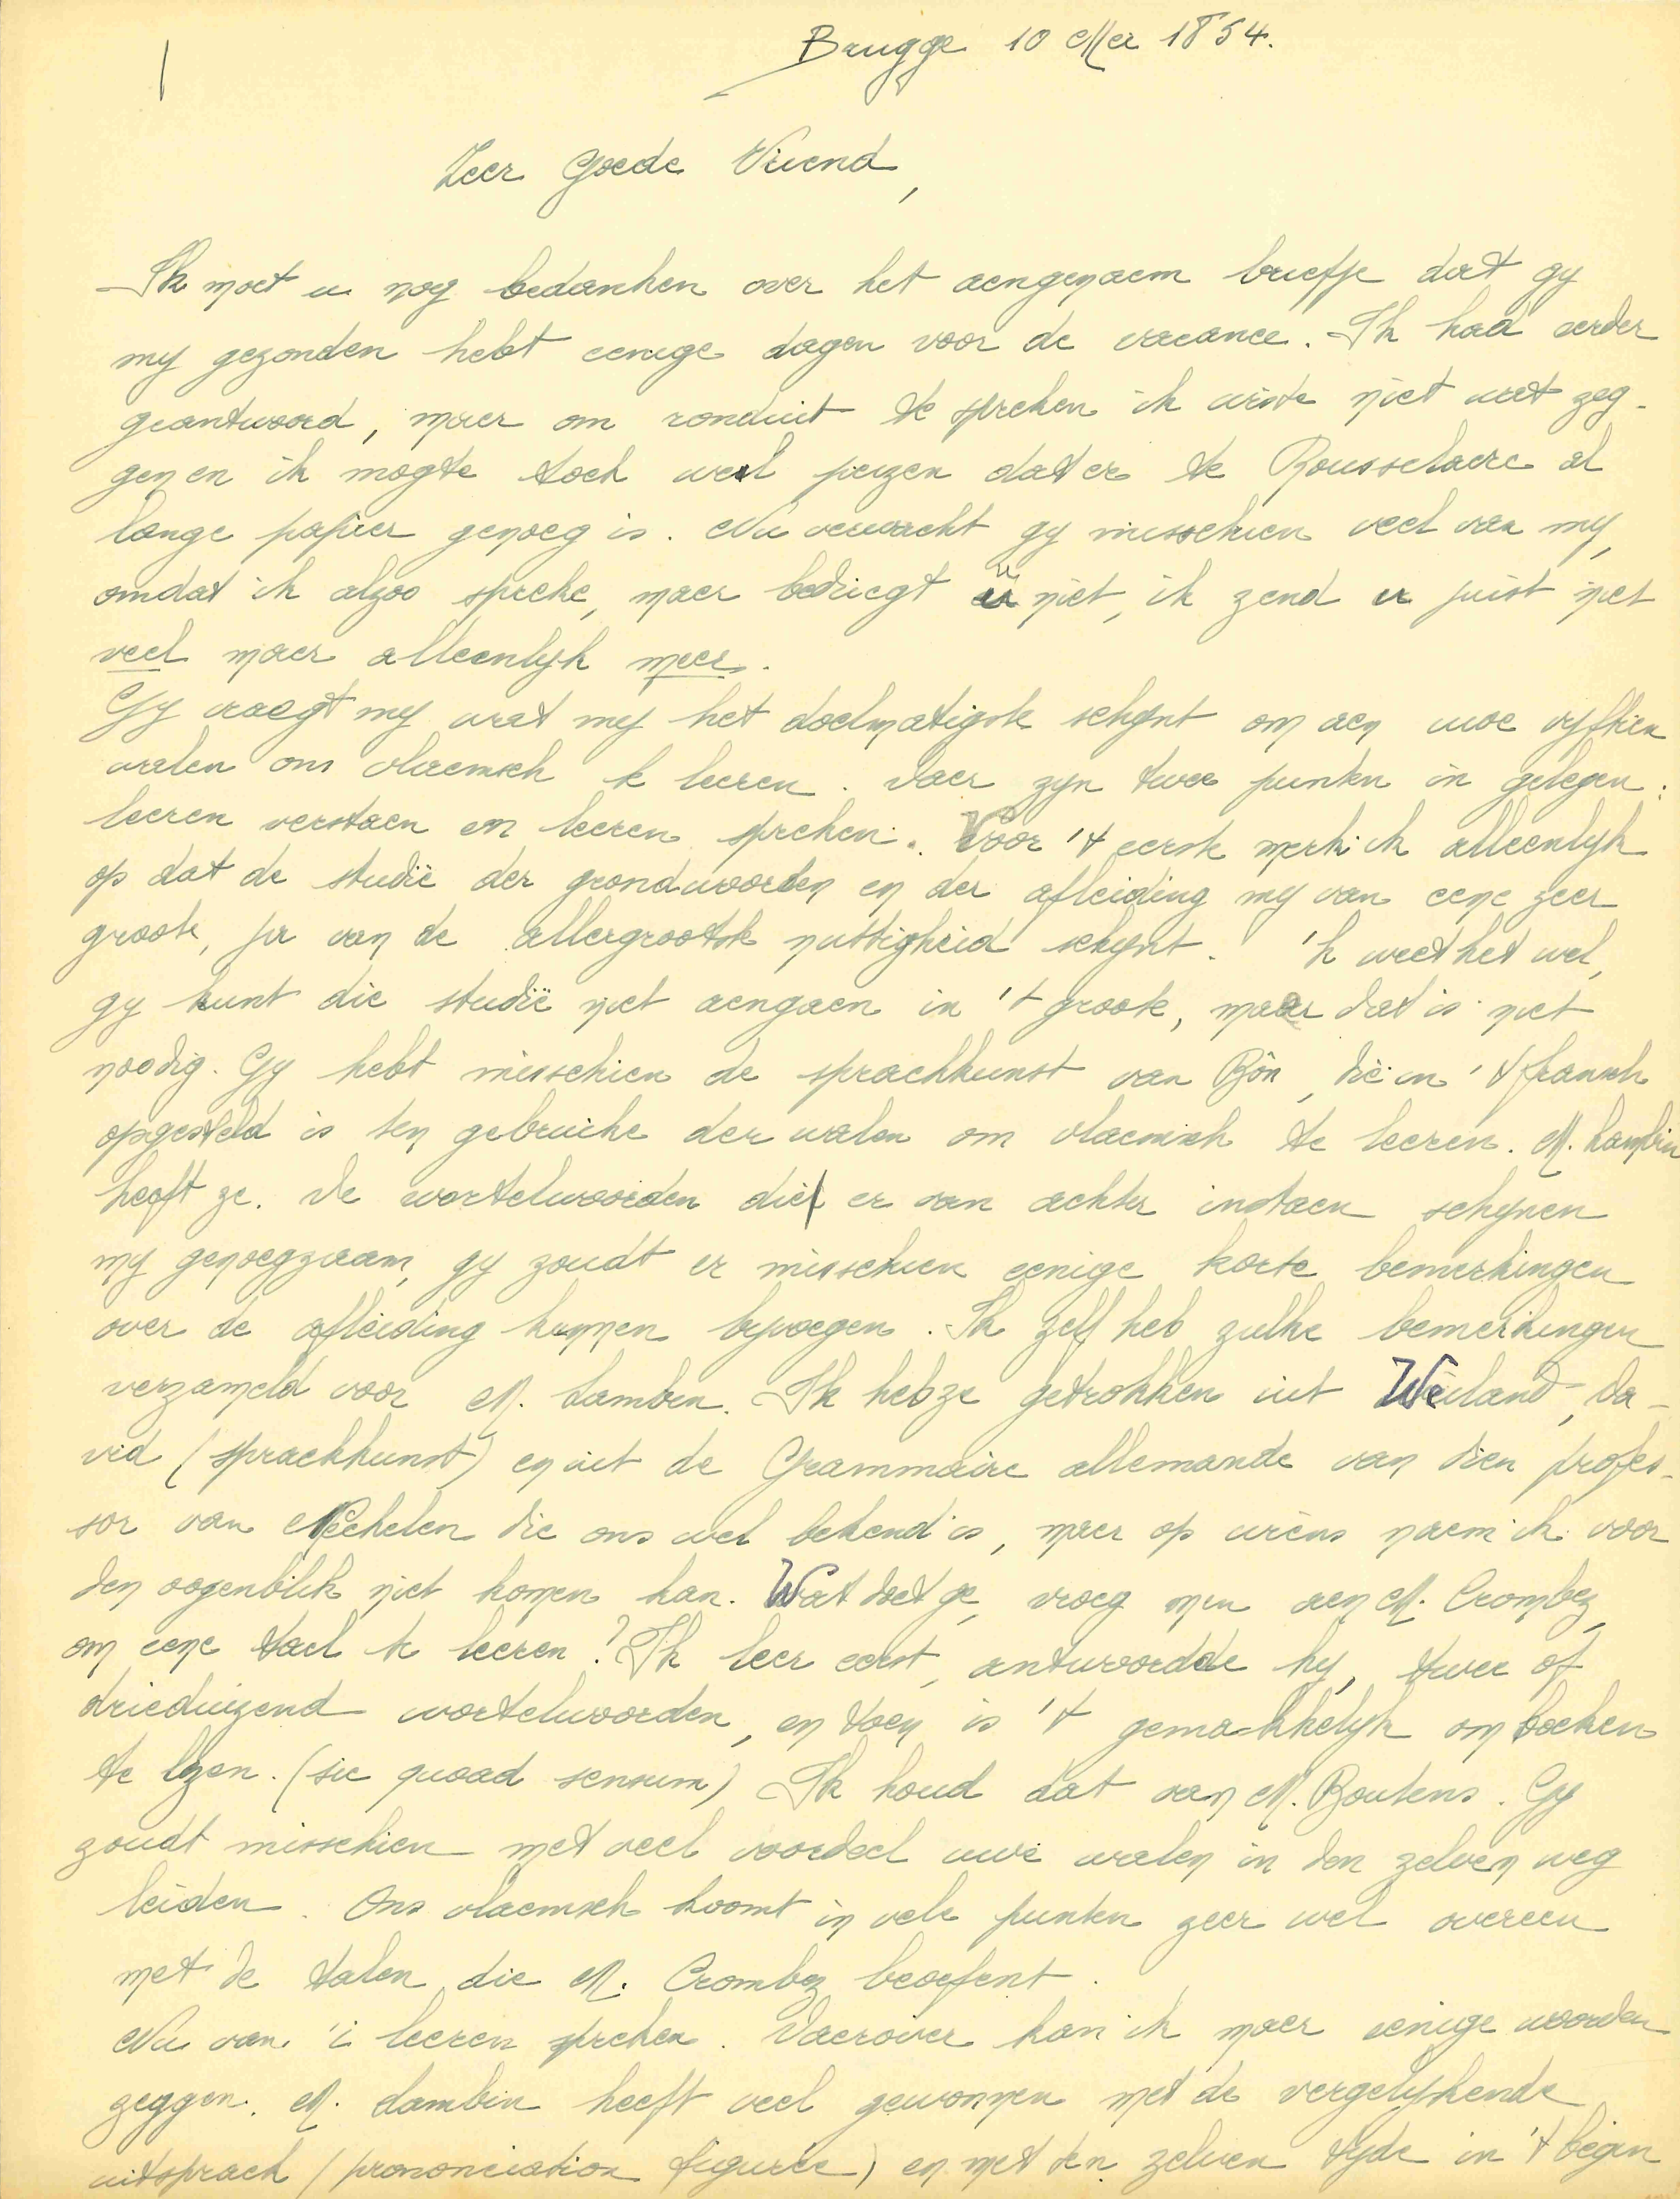 Brugge 10 Mei 1854.
Zeer Goede Vriend,
Ik moet u nog bedanken over het aengenaem briefje dat gy
my gezonden hebt eenige dagen voor de vacance. Ik had eerder
geantwoord, maer om ronduit te spreken ik wiste niet wat zeg-
gen en ik mogte toch wel peizen dat er te Rousselaere al
lange papier genoeg is. Nu verwacht gy misschien veel van my,
omdat ik alzoo spreke, maer bedriegt u niet, ik zend u juist niet
veel maer alleenlyk meer.
Gy vraegt my wat my het doelmatigste schynt om aen uwe vyftien
walen ons vlaemsch te leeren. Daer zyn twee punten in gelegen:
leeren verstaen en leeren spreken. Voor 't eerste merk ik alleenlyk
op dat de studië der grondwoorden en der afleiding my van eene zeer
groote, ja van de allergrootste nuttigheid schynt. 'k weet het wel,
gy kunt die studië niet aengaen in 't groote, maar dat is niet
noodig. Gy hebt misschien de spraekkunst van Bôn, die in 't fransch
opgesteld is ten gebruike der walen om vlaemsch te leeren. M. Lambin
heeft ze. De wortelwoorden die er van achter instaen schynen
my genoegzaam, gy zoudt er misschien eenige korte bemerkingen
over de afleiding kunnen byvoegen. Ik zelf heb zulke bemerkingen
verzameld voor M. Lambin. Ik heb ze getrokken uit Weiland, Da-
vid (spraekkunst) en uit de Grammaire allemande van dien profes-
sor van Mechelen die ons wel bekend is, maer op wiens naem ik voor
den oogenblik niet komen kan. Wat doet ge, vroeg men aen M. Crombez,
om eene tael te leeren? Ik leer eerst, antwoordde hy, twee of
drieduizend wortelwoorden, en toen is 't gemakkelyk om boeken
te lezen. (sic quoad sensum) Ik houd dat van M. Boutens. Gy
zoudt misschien met veel voordeel uwe walen in den zelven weg
leiden. Ons vlaemsch koomt in vele punten zeer wel overeen
met de talen die M. Crombez beoefent.
Nu van 't leeren spreken. Daerover kan ik maer eenige woorden
zeggen. M. Lambin heeft veel gewonnen met de vergelykende
uitspraek (prononciation figurée) en met den zelven tyde in 't begin